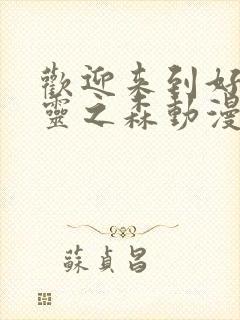 歡迎来到好
靈之森動漫
蘇貞昌